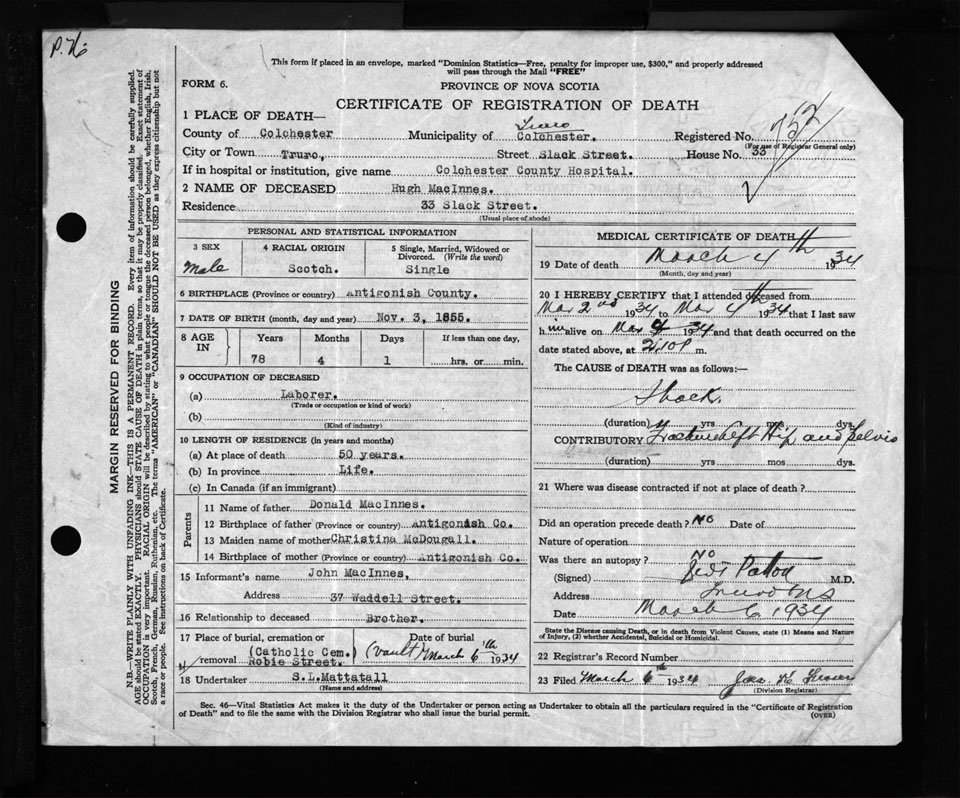 P. H.
This form if placed in an envelope, marked "Dominion Statistics—Free, penalty for improper use, $300," and properly addressed
will pass through the Mail "FREE"
FORM 6.
PROVINCE OF NOVA SCOTIA
CERTIFICATE OF REGISTRATION OF DEATH
1 PLACE OF DEATH—
Truro
752
County of Colchester Municipality of Colchester. Registered No.
(For use of Registrar General only)
City or Town Truro, Street Slack Street. House No. 33
If in hospital or institution, give name Colchester County Hospital.
2 NAME OF DECEASED Hugh MacInnes.
Residence 33 Slack Street.
(Usual place of abode)
PERSONAL AND STATISTICAL INFORMATION
3 SEX 4 RACIAL ORIGIN 5 Single, Married, Widowed or
Divorced. (Write the word)
Male Scotch. Single
6 BIRTHPLACE (Province or country) Antigonish County.
7 DATE OF BIRTH (month, day and year) Nov. 3, 1855.
8 AGE IN Years Months Days If less than one day,
78 4 1 hrs. or min.
9 OCCUPATION OF DECEASED
(a) Laborer.
(Trade or occupation or kind of work)
(b)
(Kind of industry)
10 LENGTH OF RESIDENCE (in years and months)
(a) At place of death 50 years.
(b) In province Life.
(c) In Canada (if an immigrant)
Parents
11 Name of father Donald MacInnes.
12 Birthplace of father (Province or country) Antigonish Co.
13 Maiden name of mother Christina McDougall.
14 Birthplace of mother (Province or country) Antigonish Co.
15 Informant's name John MacInnes.
Address 37 Waddell Street.
16 Relationship to deceased Brother.
17 Place of burial, cremation or Date of burial
removal (Catholic Cem.) Robie Street. (vault) March 6th 1934
18 Undertaker S.L.Mattatall
(Name and address)
MEDICAL CERTIFICATE OF DEATH
19 Date of death March 4th 1934
(Month, day and year)
20 I HEREBY CERTIFY that I attended deceased from
Mar 2nd 1934 to Mar 4th 1934 that I last saw
him alive on Mar 4 1934 and that death occurred on
date stated above, at 2:10 P m.
The CAUSE of DEATH was as follows:—
Shock.
(duration) yrs mos dys.
CONTRIBUTORY Fracture left Hip and Pelvis
(duration) yrs mos dys.
21 Where was disease contracted if not at place of death?
Did an operation precede death? No Date of
Nature of operation
Was there an autopsy? No
(Signed) Patton M.D.
Address Truro N.S
Date March 6 1934
State the Disease causing Death, or in death from Violent Causes, state (1) Means and Nature
of Injury, (2) whether Accidental, Suicidal or Homicidal.
22 Registrar's Record Number
23 Filed March 6th 1934
(Division Registrar)
Sec. 46—Vital Statistics Act makes it the duty of the Undertaker or person acting as Undertaker to obtain all the particulars required in the "Certificate of Registration
of Death" and to file the same with the Division Registrar who shall issue the burial permit. (OVER)
MARGIN RESERVED FOR BINDING
N.B.—WRITE PLAINLY WITH UNFADING INK—THIS IS A PERMANENT RECORD. Every item of information should be carefully supplied.
AGE should be stated EXACTLY. PHYSICIANS should STATE CAUSE OF DEATH in plain terms, so that it may be properly classified. Exact statement of
OCCUPATION is very important. RACIAL ORIGIN will be described by stating to what people or tongue the deceased person belonged, whether English, Irish,
Scotch, French, German, Russian, Ruthenian, etc. The terms "AMERICAN" or "CANADIAN" SHOULD NOT BE USED as they express citizenship but not
a race or people. See instructions on back of Certificate.